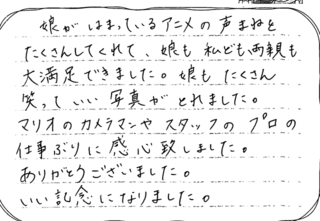 娘がはまっているアニメの声まねを
たくさんしてくれて、娘も私ども両親も
大満足できました。娘もたくさん
笑っていい写真がとれました。
マリオのカメラマンやスタッフのプロの
仕事ぶりに感心致しました。
ありがとうございました。
いい記念になりました。